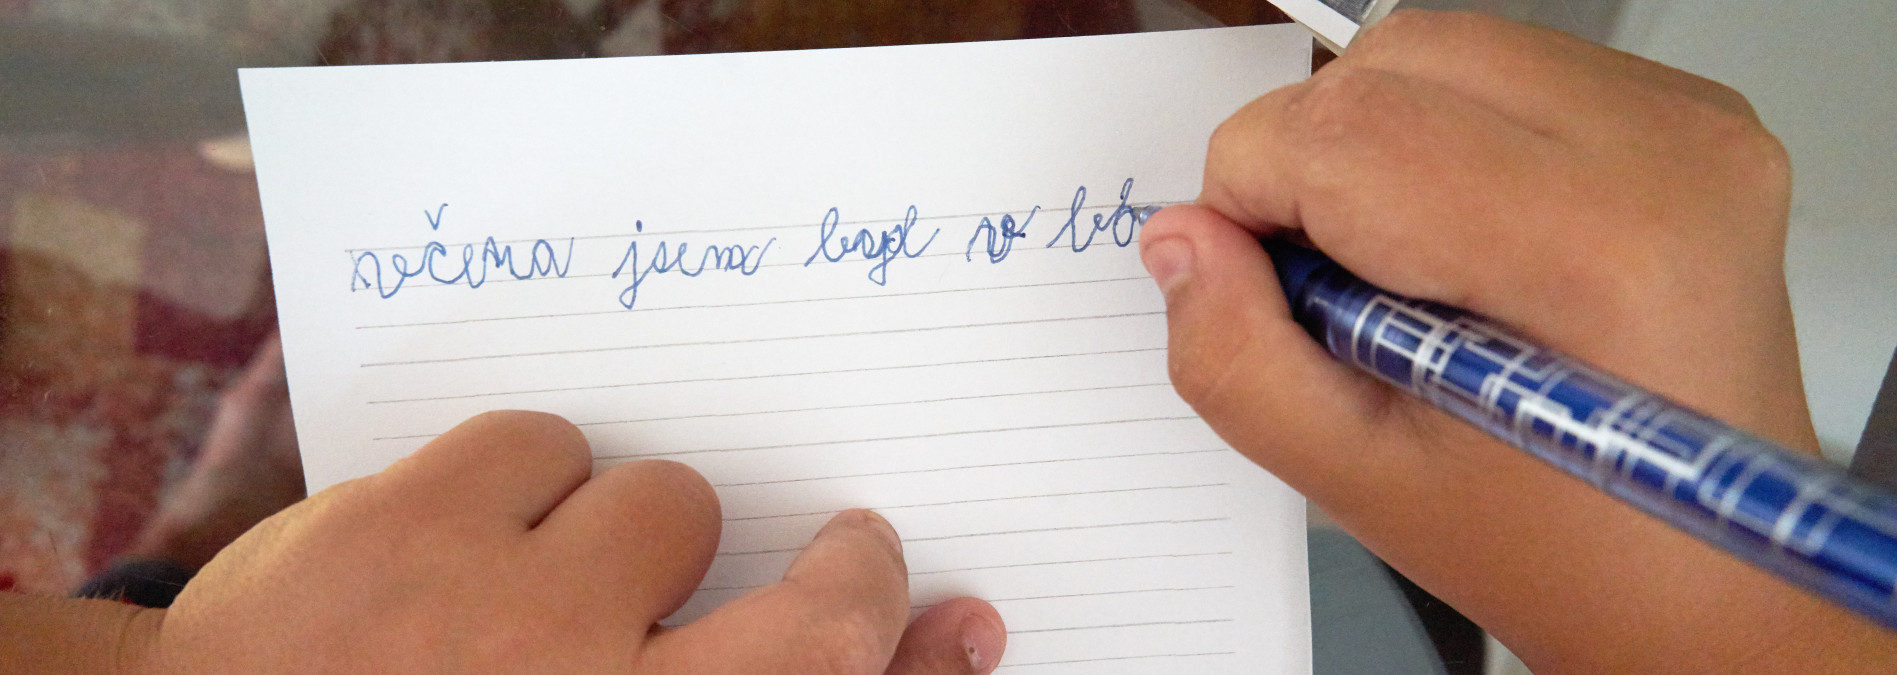 večera jsem byl v